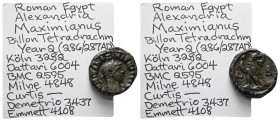 Roman Egypt
Alexandria
Maximianus
Billon Tetradrachm
Year 2 (286/287AD)
Köln 3282
Dattari 6004
BMC 2595
Milne 4848
Curtis —
Demetrio 3437
Emmett 4108
Roman Egypt
Alexandria
Maximianus
Billon Tetradrachm
Year 2 (286/287AD)
Köln 3282
Dattari 6004
BMC 2595
Milne 4848
Curtis —
Demetrio 3437
Emmett 4108